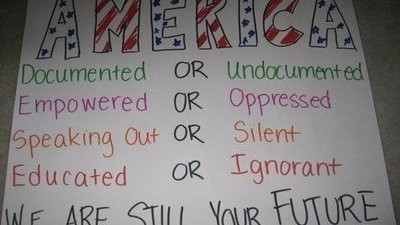 AMERICA
Documented OR Undocumented
Empowered OR Oppressed
Speaking Out OR Silent
Educated OR Ignorant
WE ARE STILL YOUR FUTURE